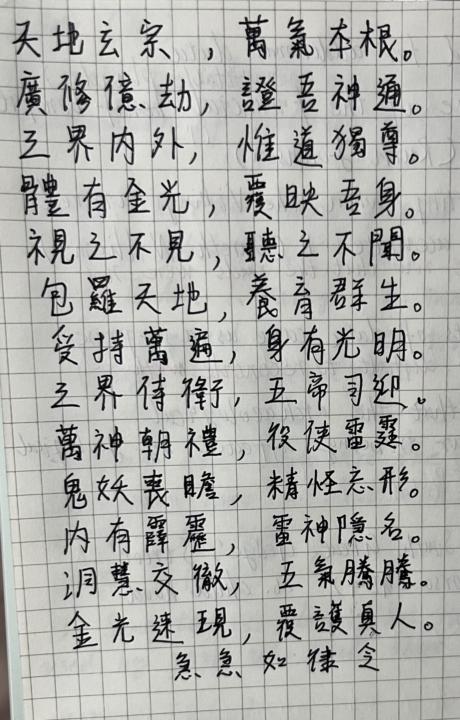 天地玄宗，萬氣本根。
廣修億劫，證吾神通。
三界內外，惟道獨尊。
體有金光，覆映吾身。
視之不見，聽之不聞。
包羅天地，養育群生。
受持萬遍，身有光明。
三界侍衛，五帝司迎。
萬神朝禮，役使雷霆。
鬼妖喪膽，精怪忘形。
內有霹靂，雷神隱名。
洞慧交徹，五氣騰騰。
金光速現，覆護真人。
急急如律令